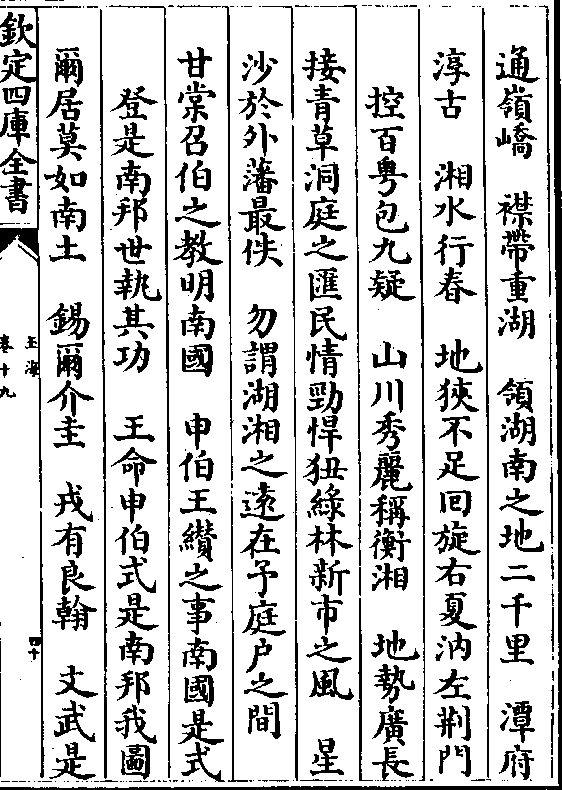 通嶺嶠　襟帶重湖　領湖南之地二千里　潭府
淳古　湘水行春　地狹不足回旋右夏汭左荆門
控百粤包九疑　山川秀麗稱衡湘　地勢廣長
接青草洞庭之匯民情勁悍狃綠林新市之風　星
沙於外藩最佚　勿謂湖湘之遠在予庭户之間
甘棠召伯之教明南國　申伯王纘之事南國是式
登是南邦世執其功　王命申伯式是南邦我圖
爾居莫如南土　錫爾介圭　戎有良翰　文武是
欽定四庫全書
玉海
卷十九
四十